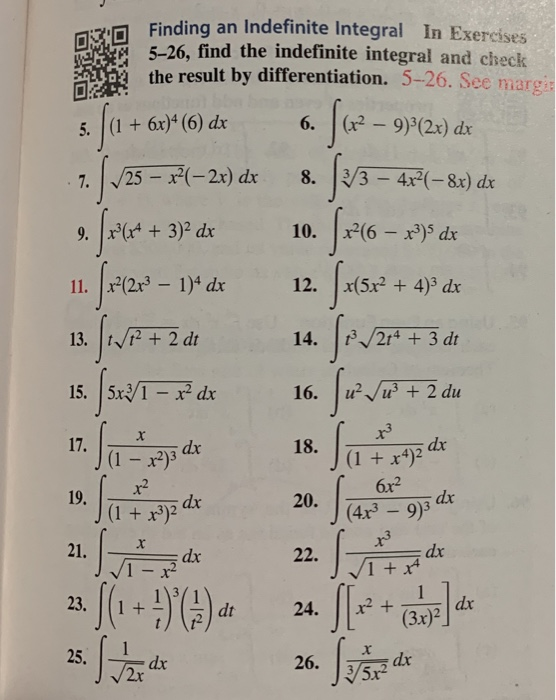 Finding an Indefinite Integral In Exercises
5–26, find the indefinite integral and check
the result by differentiation. 5–26. See margin
5. ∫(1 + 6x)⁴ (6) dx 6. ∫(x² − 9)³(2x) dx
7. ∫√(25 − x²)(−2x) dx 8. ∫∛(3 − 4x²)(−8x) dx
9. ∫x³(x⁴ + 3)² dx 10. ∫x²(6 − x³)⁵ dx
11. ∫x²(2x³ − 1)⁴ dx 12. ∫x(5x² + 4)³ dx
13. ∫t√(t² + 2) dt 14. ∫t³√(2t⁴ + 3) dt
15. ∫5x∛(1 − x²) dx 16. ∫u²√(u³ + 2) du
17. ∫x/(1 − x²)³ dx 18. ∫x³/(1 + x⁴)² dx
19. ∫x²/(1 + x³)² dx 20. ∫6x²/(4x³ − 9)³ dx
21. ∫x/√(1 − x²) dx 22. ∫x³/√(1 + x⁴) dx
23. ∫(1 + 1/t)³(1/t²) dt 24. ∫[x² + 1/(3x)²] dx
25. ∫1/√(2x) dx 26. ∫x/∛(5x²) dx